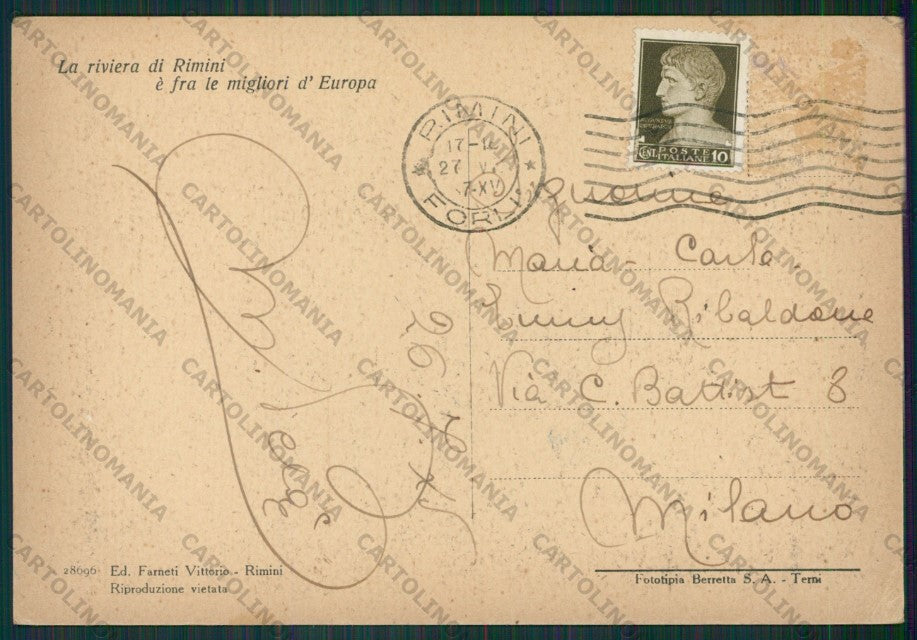 La riviera di Rimini
è fra le migliori d' Europa
RIMINI
17-18
27 V
7-XV
FORLI
POSTE
ITALIANE
CENT. 10
Signorine
Maria - Carla
Ribaldone
Via C. Battist 8
Milano
28696 Ed. Farneti Vittorio - Rimini
Riproduzione vietata
Fototipia Berretta S. A. - Terni
CARTOLINOMANIA